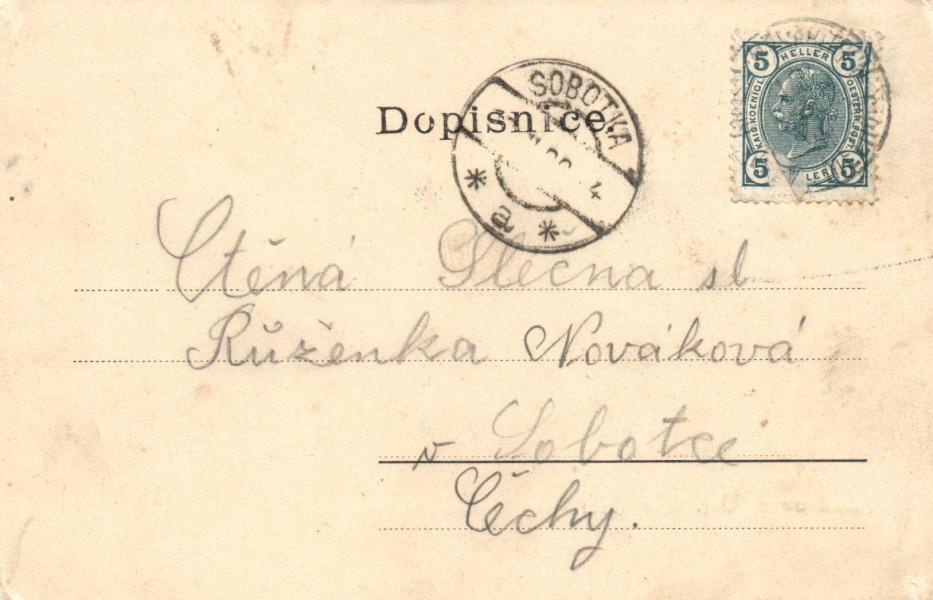 Dopisnice.
SOBOTKA
4
a
5 HELLER 5
KAIS. KOENIGL. OESTERR. POST.
5 5
Ctěná Slečna sl
Růženka Nováková
v Sobotce
Čechy.